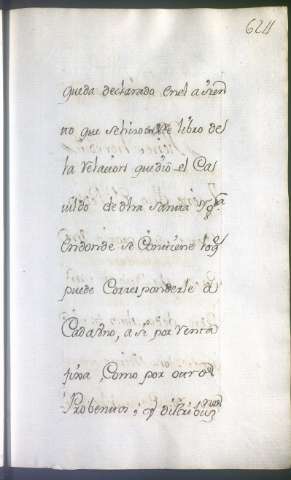 624
queda declarado en el asien
no que se hizo en este libro de
la relacion que dio el Ca
vildo de dha santa Yg.ª
en donde se contiene lo q.e
puede corresponderle â
Cada uno, a si por venta
fixa, Como por otros
Probentos, y distribuz.nes